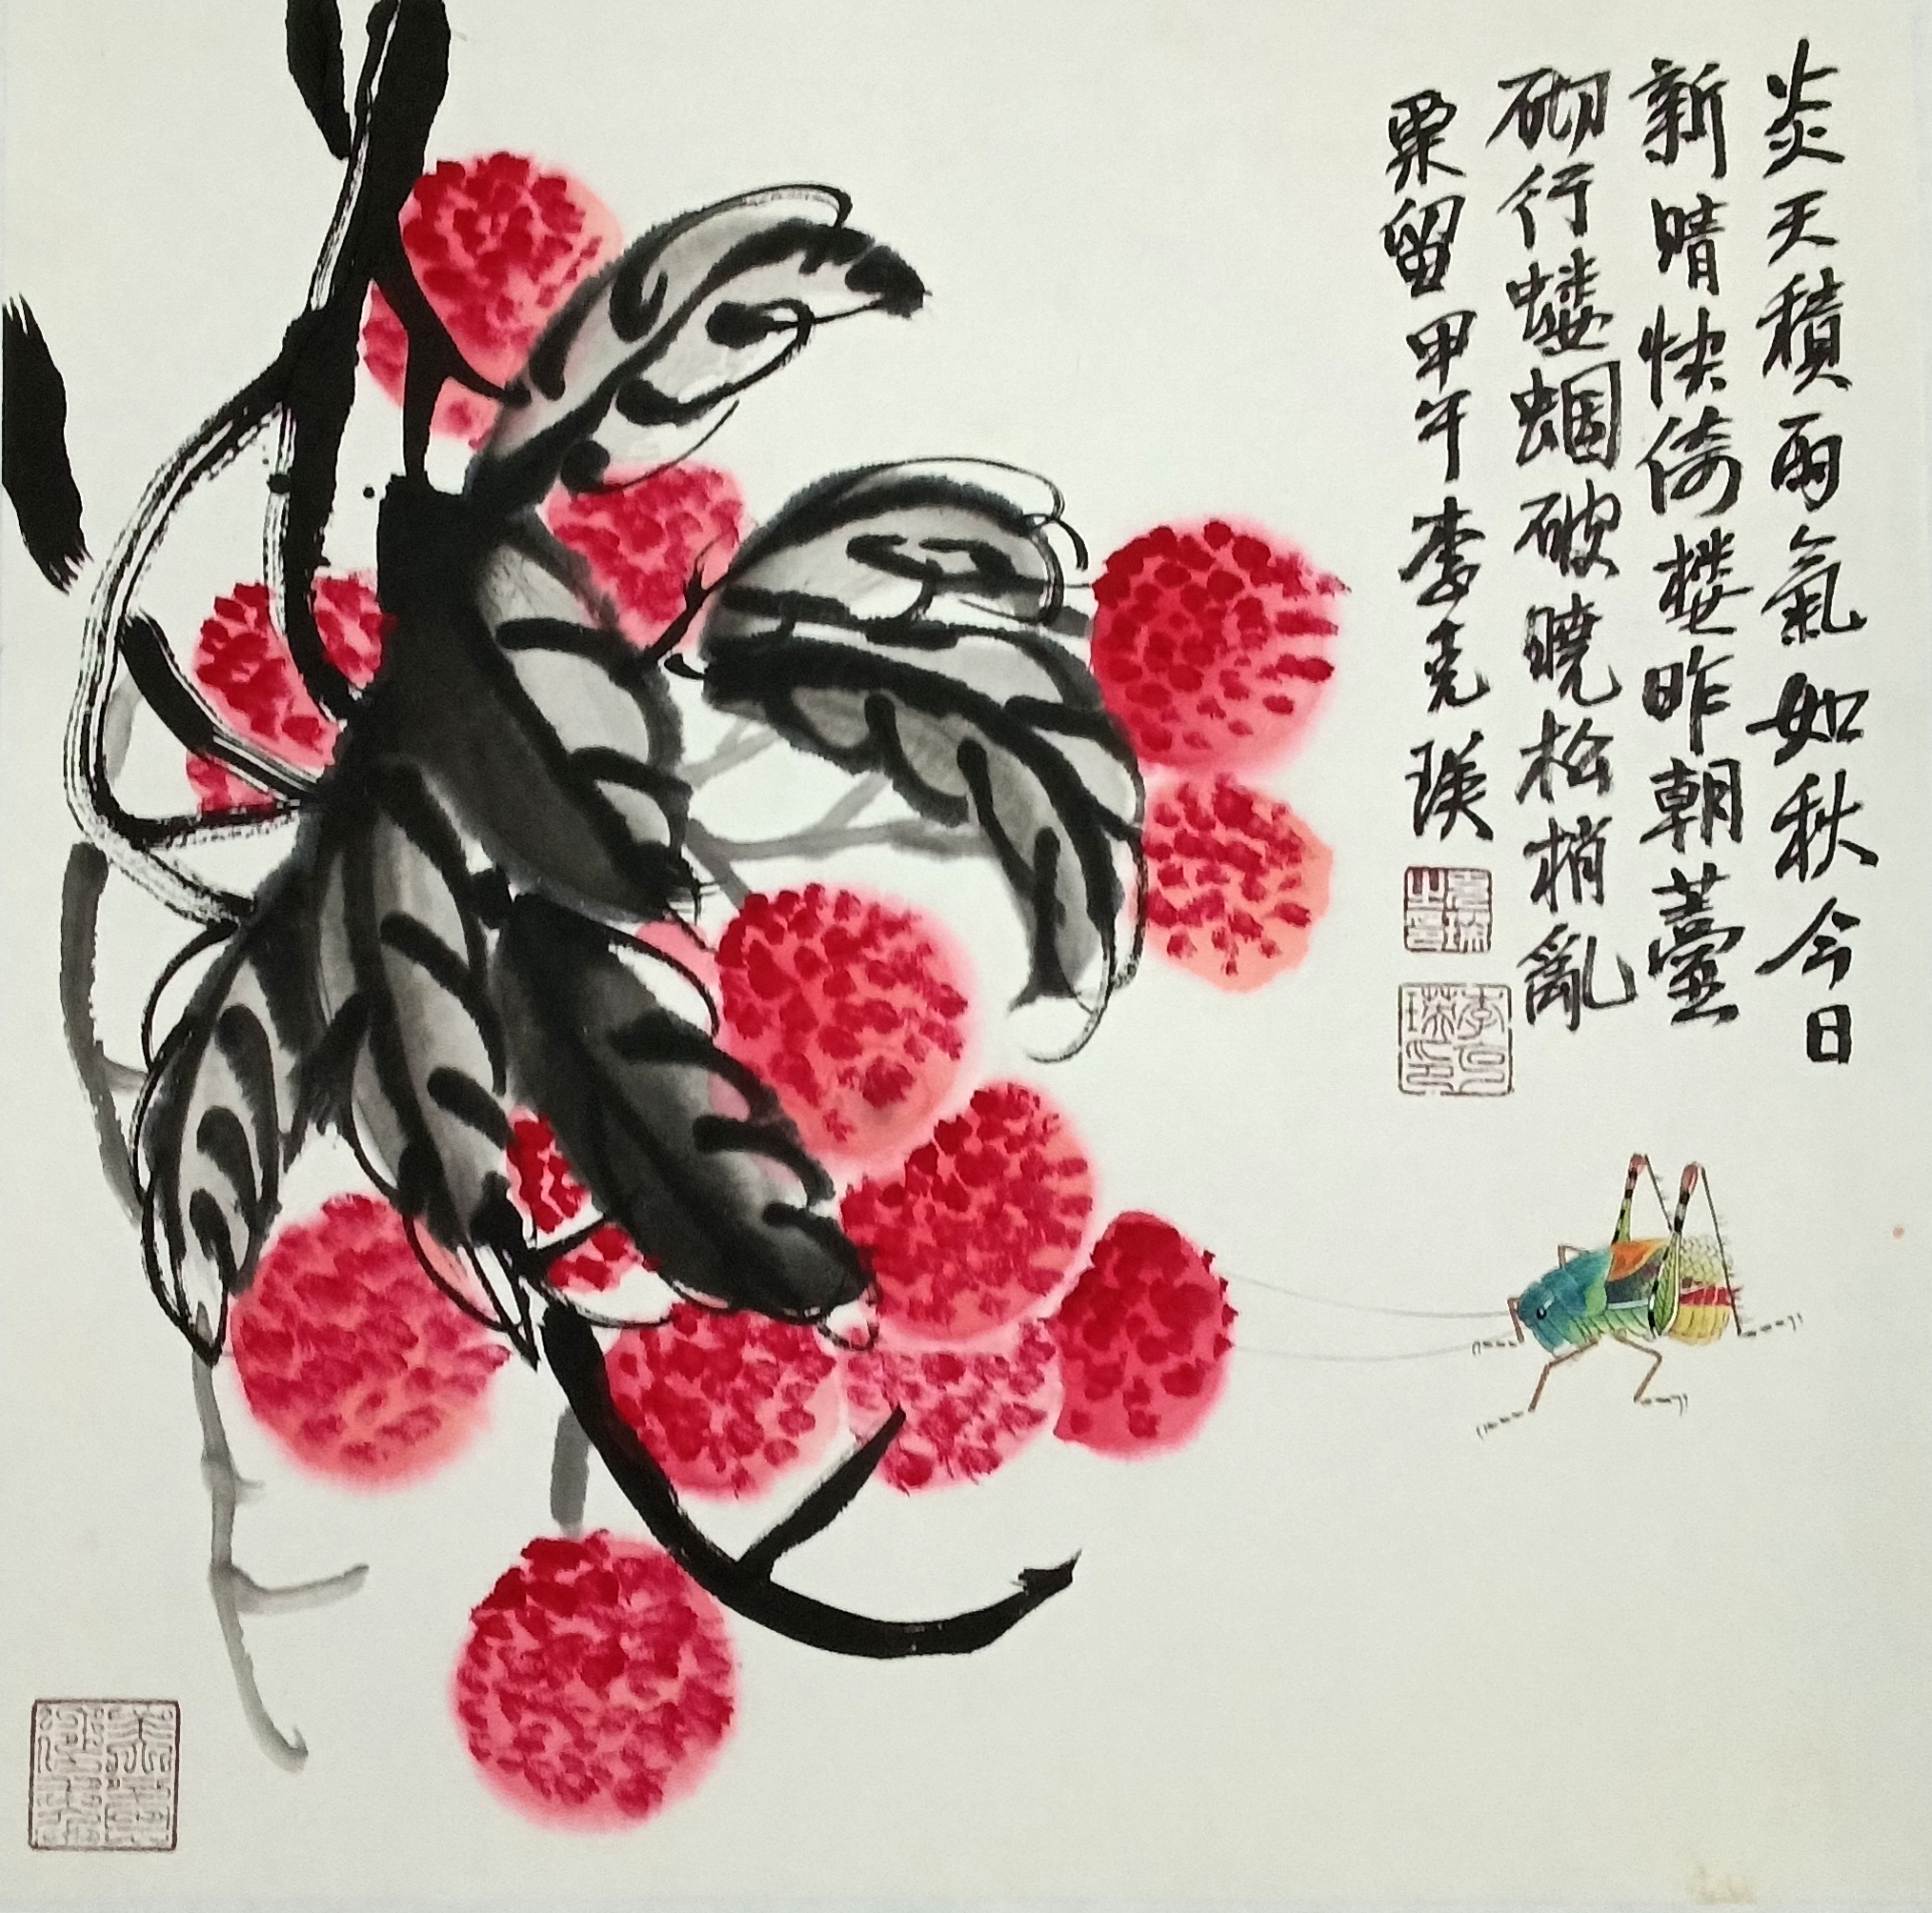 炎天積雨氣如秋今日
新晴快倚楼昨朝蔓
砌行蝼蝈破曉松梢亂
栗留甲午李克瑛